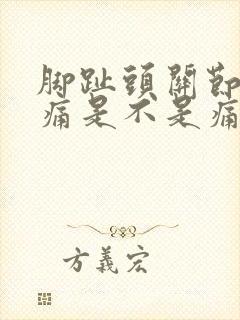 脚趾頭關節
痛是不是痛
方義宏